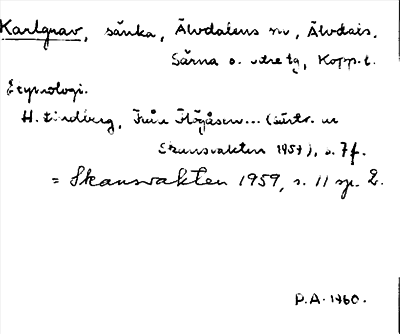 Karlgrav, sänka, Älvdalens sn, Älvdals,
Särna o. Idre tg, Kopp. l.
Etymologi.
H. Lindberg, Från Flögåsen... (särtr. ur
Skansvakten 1957), s. 7 f.
= Skansvakten 1959, s. 11 sp. 2.
P.A. 1960.